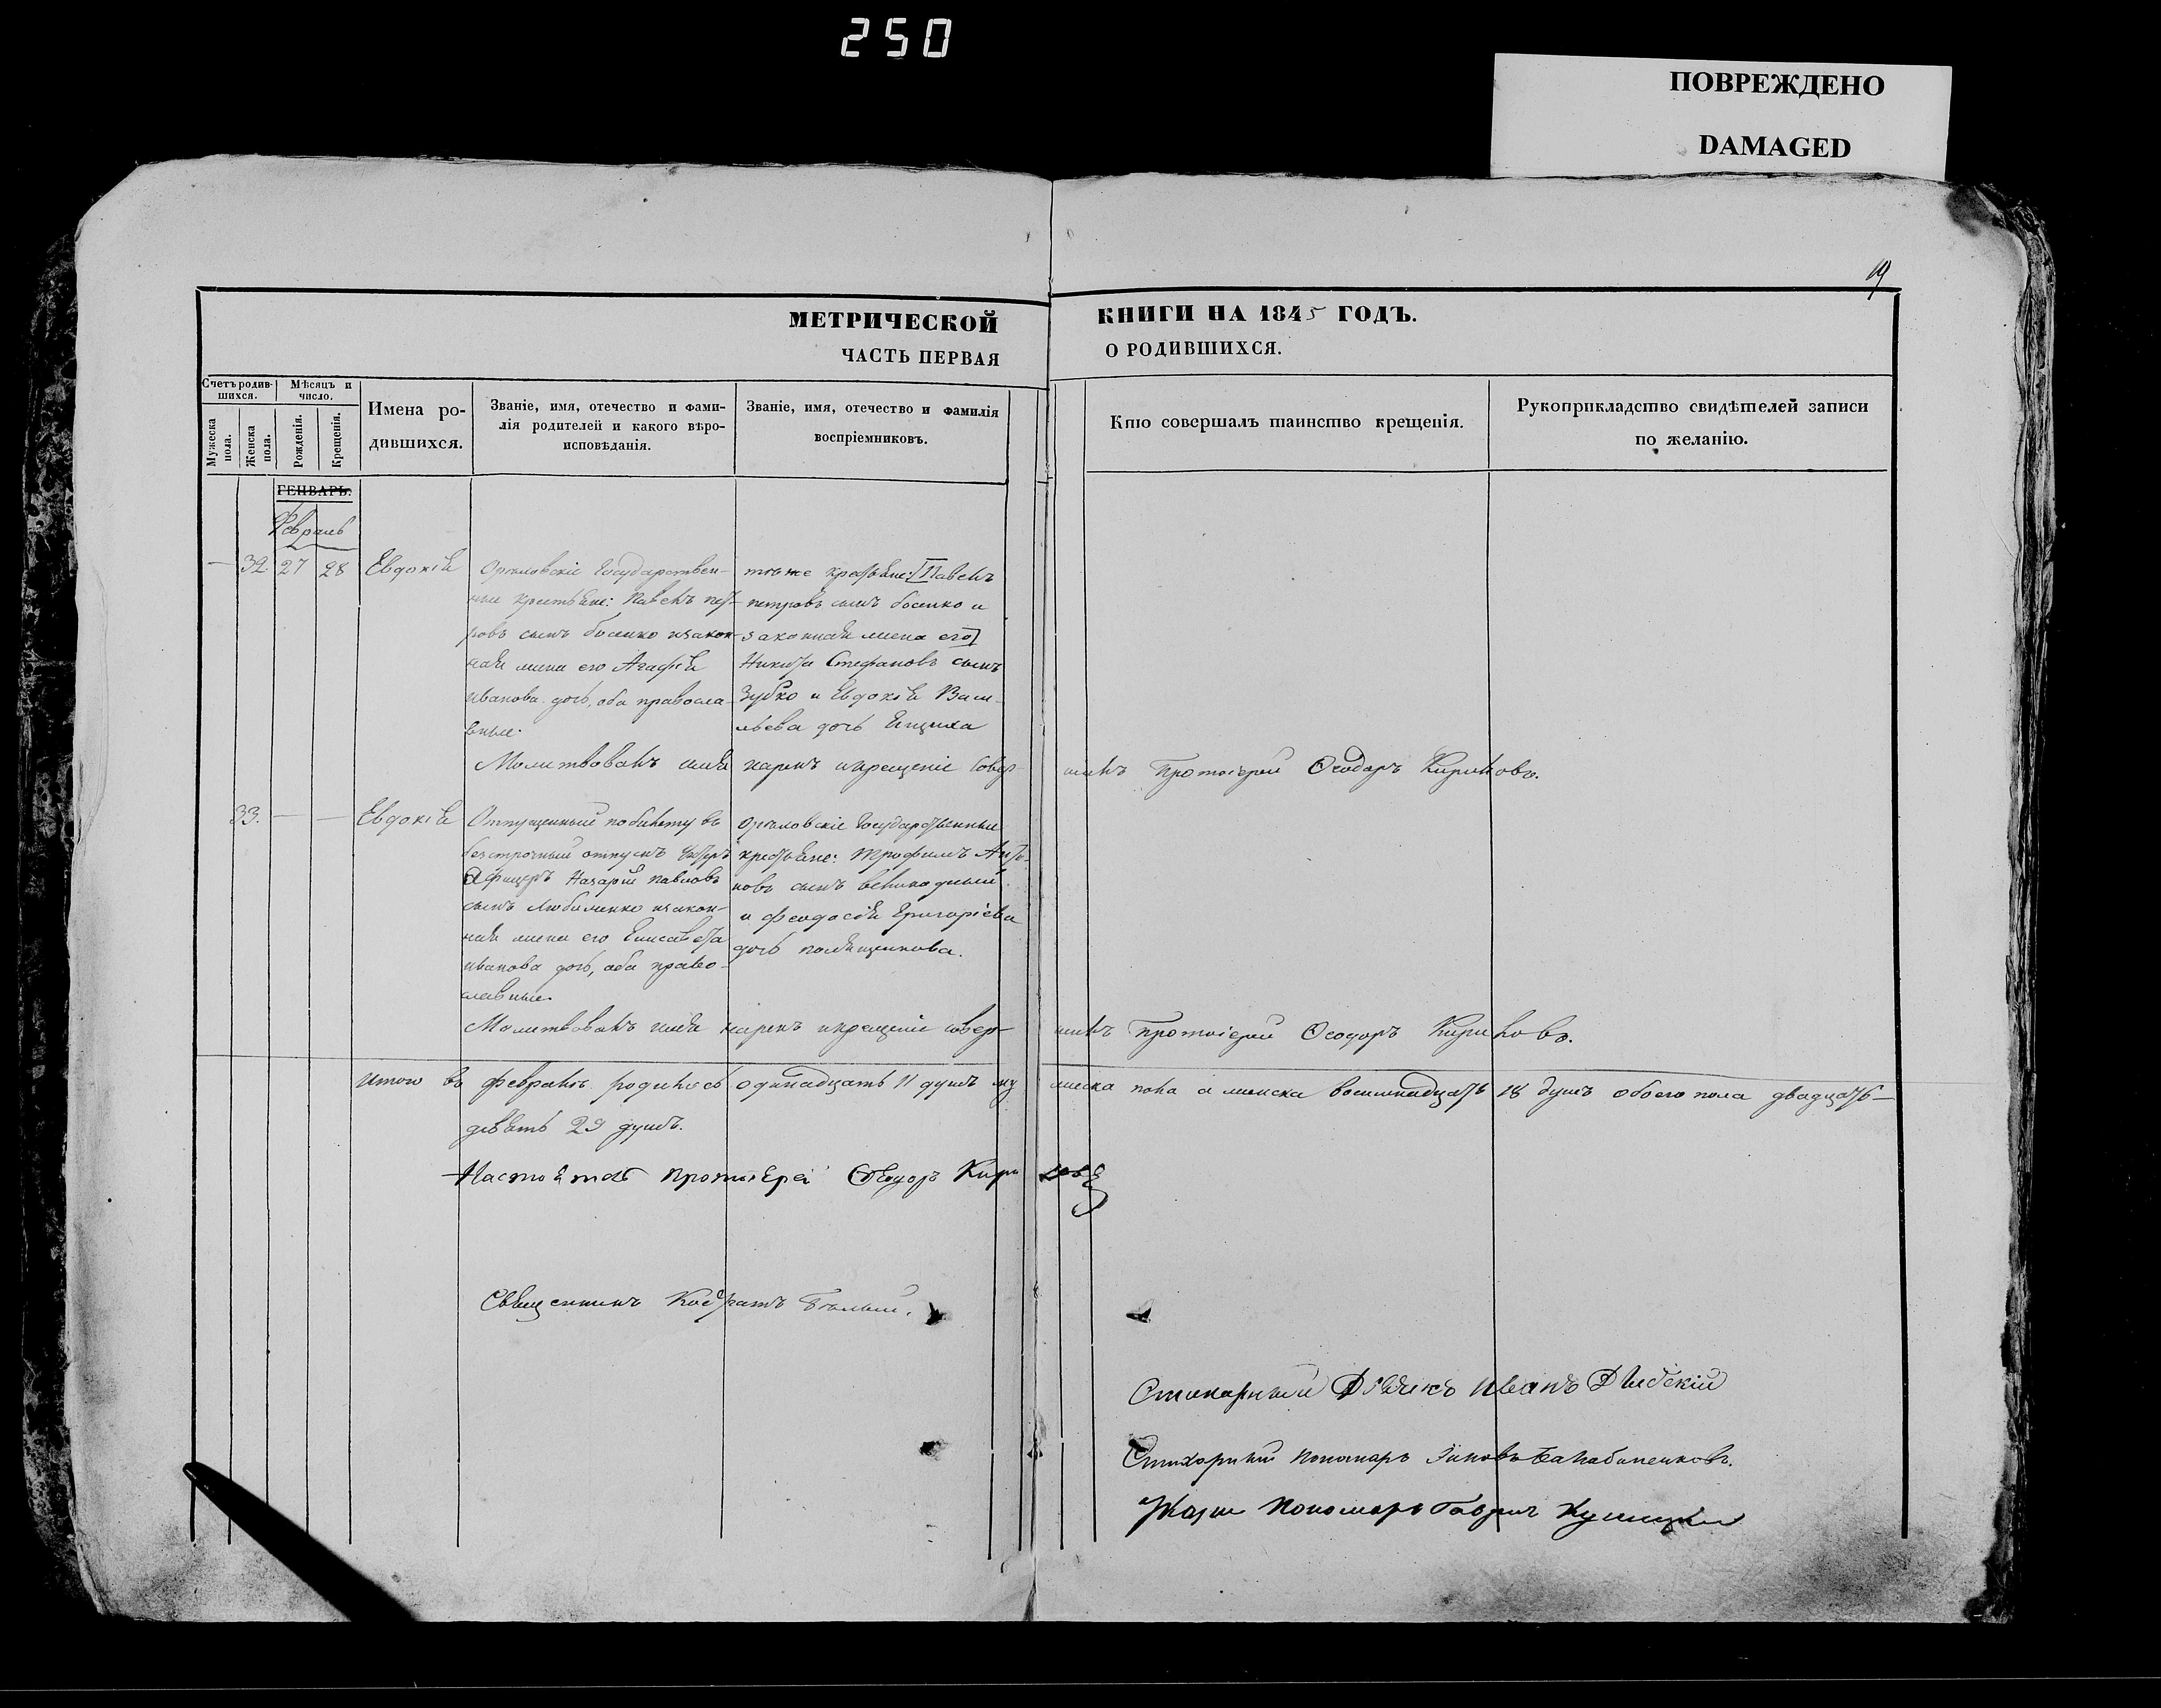 250
ПОВРЕЖДЕНО
DAMAGED
19
МЕТРИЧЕСКОЙ КНИГИ НА 1845 ГОДЪ.
ЧАСТЬ ПЕРВАЯ О РОДИВШИХСЯ.
Счетъ родив-
шихся.
Мужеска
пола.
Женска
пола.
Мѣсяцъ и
число.
Рожденія.
Крещенія.
Имена ро-
дившихся.
Званіе, имя, отечество и фами-
лія родителей и какого вѣро-
исповѣданія.
Званіе, имя, отечество и фамилія
воспріемниковъ.
Кто совершалъ таинство крещенія.
Рукоприкладство свидѣтелей записи
по желанію.
ГЕНВАРЬ.
Февраль
— 32 27 28
Евдокія
Орѣховскіе Государствен-
ные крестьяне: Павелъ пет-
ровъ сынъ босенко изакон-
ная жена его Агафія
иванова дочь, оба правосла-
вные.
тѣже крестьяне: [Павелъ
петровъ сынъ босенко и
законная жена его]
Никита Стефановъ сынъ
Зубко и Евдокія Васи-
льева дочь
Молитвовалъ имя нарекъ икрещеніе совер-
шилъ Протоіерей Ѳеодоръ Кириловъ.
33. — —
Евдокія
Отпущенный побилету въ
безсрочный отпускъ Унтеръ
Офицеръ Назарій павловъ
сынъ Любименко изакон-
ная жена его Елисавета
иванова дочь, оба право-
славные.
Орѣховскіе Государственные
крестьяне: Трофимъ Анто-
новъ сынъ великодный
и Феодосія Григоріева
дочь помѣщикова.
Молитвовалъ имя нарекъ икрещеніе совер-
шилъ Протоіерей Ѳеодоръ Кириловъ.
Итого въ февралѣ родилось одинадцать 11 душъ му
жеска пола а женска восемнадцать 18 душъ обоего пола двадцать—
девять 29 душъ.
Настоятель протоіерей Ѳеодоръ Кириловъ
Священникъ Кодратъ Бѣлый.
Стихарный Дьячекъ Иванъ
Стихарный пономарь Балабаненковъ.
Пономарь Гавріилъ